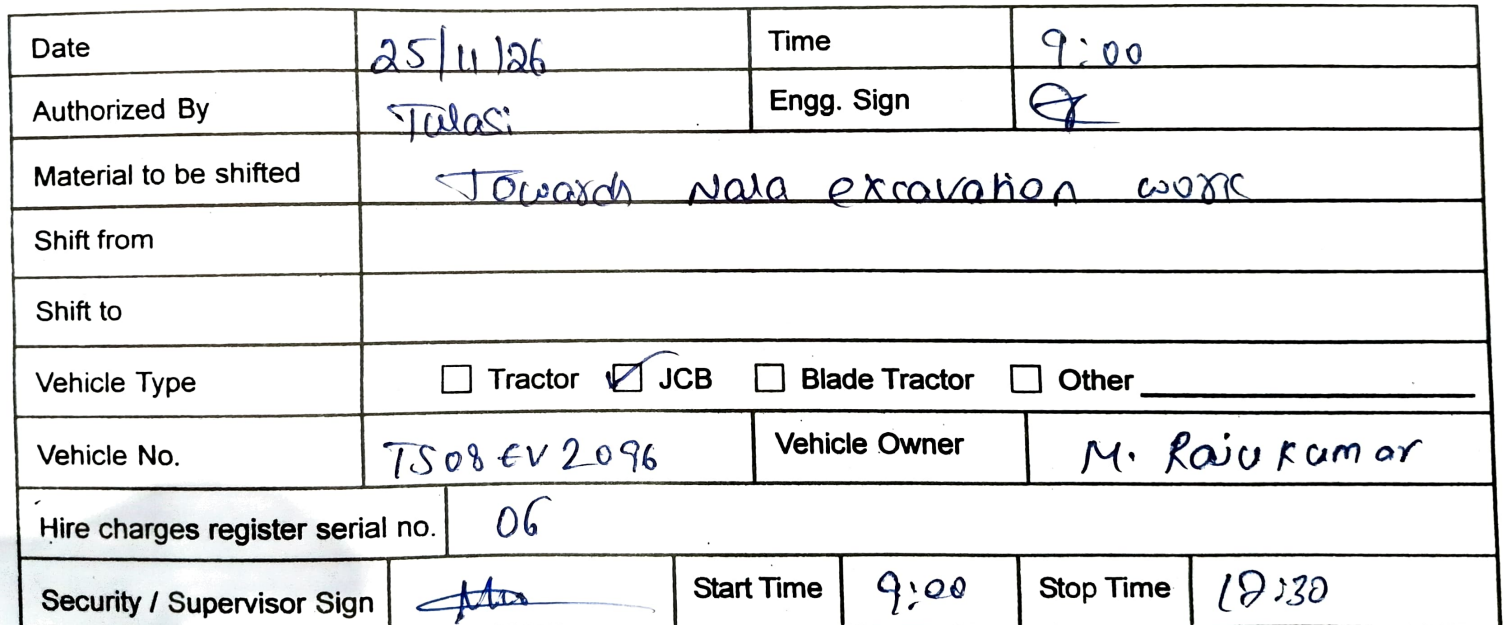 Date 25/11/26 Time 9:00
Authorized By Tulasi Engg. Sign
Material to be shifted Towards Nala excavation work
Shift from
Shift to
Vehicle Type Tractor JCB Blade Tractor Other
Vehicle No. TS08EV2096 Vehicle Owner M. Rajukumar
Hire charges register serial no. 06
Security / Supervisor Sign Start Time 9:00 Stop Time 12:30